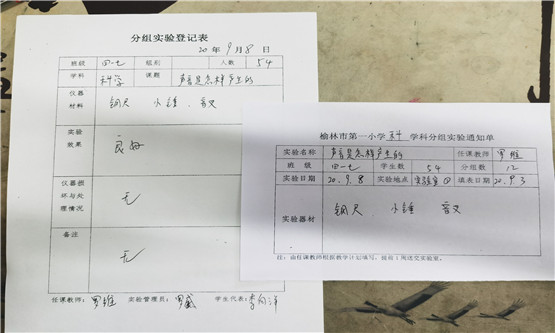 分组实验登记表
20年9月8日
班级 四一七 组别 人数 54
学科 科学 课题 声音是怎样产生的
仪器材料 钢尺 小锤 音叉
实验效果 良好
仪器损坏与处理情况 无
备注 无
任课教师: 罗维 实验管理员: 罗威 学生代表:
榆林市第一小学 科 学科分组实验通知单
实验名称 声音是怎样产生的 任课教师 罗维
班级 四一七 学生数 54 分组数 12
实验日期 20.9.8 实验地点 实验室四 填表日期 20.9.3
实验器材 钢尺、小锤 音叉
注:由任课教师根据教学计划填写,提前1周送交实验室。